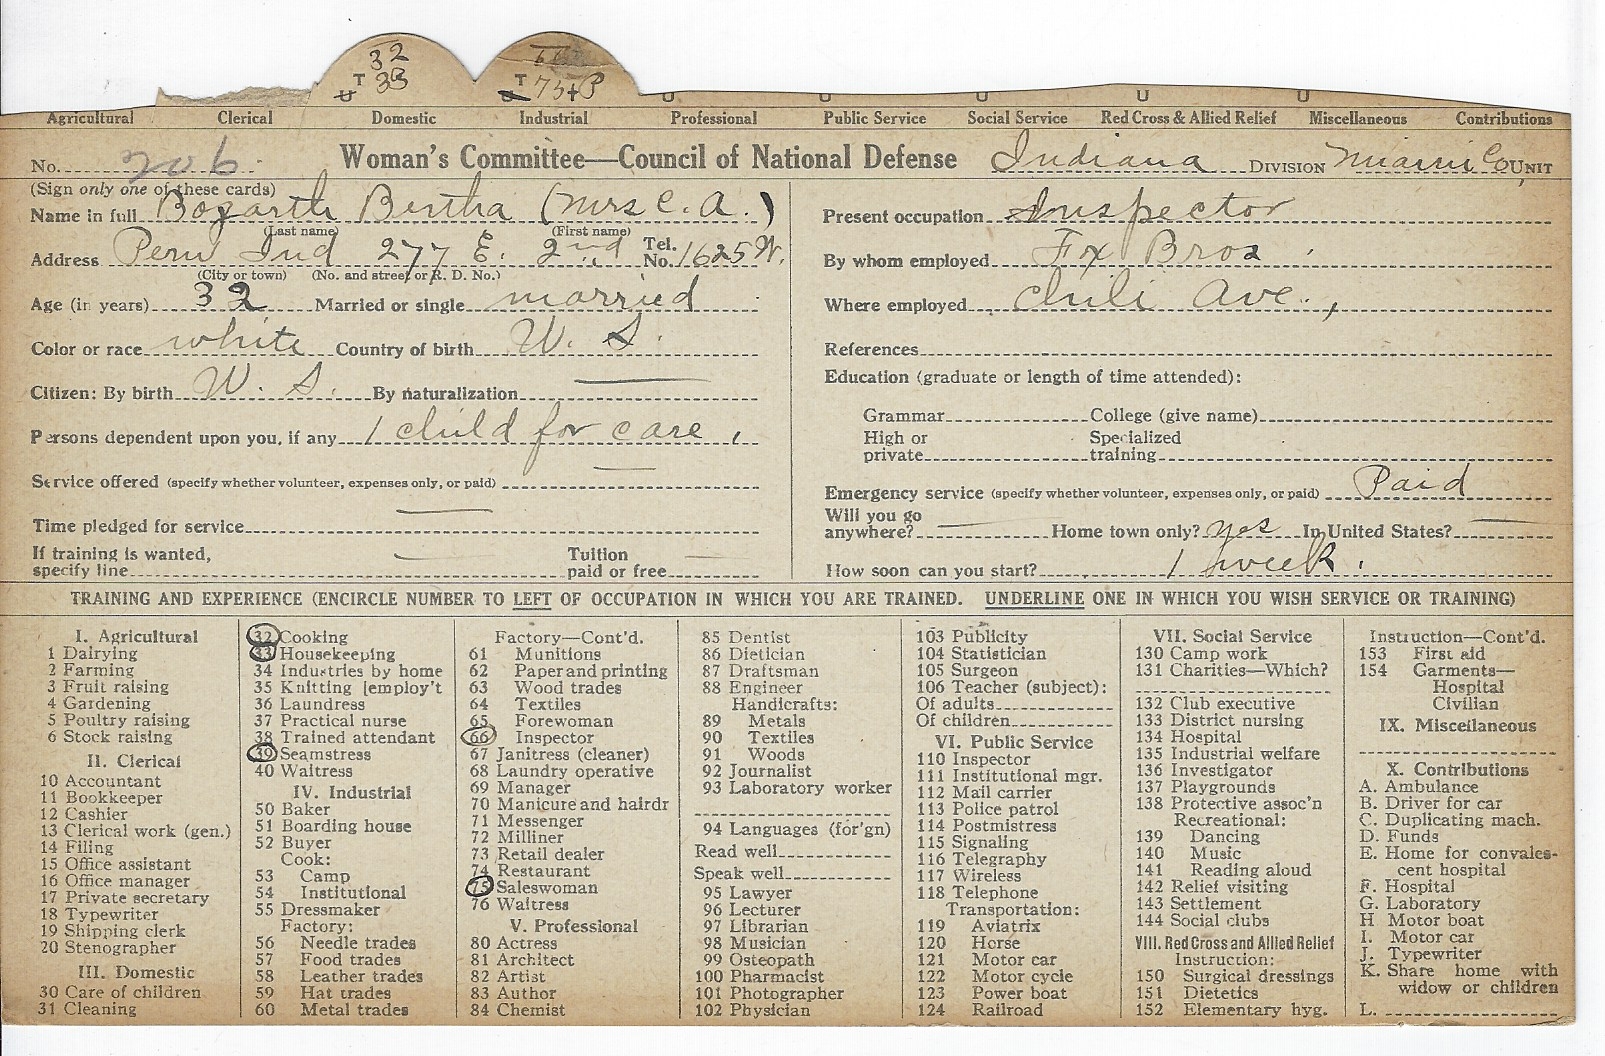 32
T 33
U
T 75+P
U U U U U
Agricultural Clerical Domestic Industrial Professional Public Service Social Service Red Cross & Allied Relief Miscellaneous Contributions
No. 206 Woman's Committee—Council of National Defense Indiana DIVISION Miami Co. UNIT
(Sign only one of these cards)
Name in full Bozarth Bertha (Mrs C. A.)
(Last name) (First name)
Address Peru Ind 277 E. 2nd Tel. No. 1625 W.
(City or town) (No. and street or R. D. No.)
Age (in years) 32 Married or single married
Color or race white Country of birth U. S.
Citizen: By birth U. S. By naturalization —
Persons dependent upon you, if any 1 child for care.
Service offered (specify whether volunteer, expenses only, or paid) —
Time pledged for service —
If training is wanted, specify line — Tuition paid or free —
Present occupation Inspector
By whom employed Fox Bros
Where employed Chili Ave.,
References
Education (graduate or length of time attended):
Grammar College (give name)
High or private Specialized training
Emergency service (specify whether volunteer, expenses only, or paid) Paid
Will you go anywhere? — Home town only? yes In United States? —
How soon can you start? 1 week.
TRAINING AND EXPERIENCE (ENCIRCLE NUMBER TO LEFT OF OCCUPATION IN WHICH YOU ARE TRAINED. UNDERLINE ONE IN WHICH YOU WISH SERVICE OR TRAINING)
I. Agricultural
1 Dairying
2 Farming
3 Fruit raising
4 Gardening
5 Poultry raising
6 Stock raising
II. Clerical
10 Accountant
11 Bookkeeper
12 Cashier
13 Clerical work (gen.)
14 Filing
15 Office assistant
16 Office manager
17 Private secretary
18 Typewriter
19 Shipping clerk
20 Stenographer
III. Domestic
30 Care of children
31 Cleaning
32 Cooking
33 Housekeeping
34 Industries by home
35 Knitting [employ't
36 Laundress
37 Practical nurse
38 Trained attendant
39 Seamstress
40 Waitress
IV. Industrial
50 Baker
51 Boarding house
52 Buyer
Cook:
53 Camp
54 Institutional
55 Dressmaker
Factory:
56 Needle trades
57 Food trades
58 Leather trades
59 Hat trades
60 Metal trades
Factory—Cont'd.
61 Munitions
62 Paper and printing
63 Wood trades
64 Textiles
65 Forewoman
66 Inspector
67 Janitress (cleaner)
68 Laundry operative
69 Manager
70 Manicure and hairdr
71 Messenger
72 Milliner
73 Retail dealer
74 Restaurant
75 Saleswoman
76 Waitress
V. Professional
80 Actress
81 Architect
82 Artist
83 Author
84 Chemist
85 Dentist
86 Dietician
87 Draftsman
88 Engineer
Handicrafts:
89 Metals
90 Textiles
91 Woods
92 Journalist
93 Laboratory worker
94 Languages (for'gn)
Read well
Speak well
95 Lawyer
96 Lecturer
97 Librarian
98 Musician
99 Osteopath
100 Pharmacist
101 Photographer
102 Physician
103 Publicity
104 Statistician
105 Surgeon
106 Teacher (subject):
Of adults
Of children
VI. Public Service
110 Inspector
111 Institutional mgr.
112 Mail carrier
113 Police patrol
114 Postmistress
115 Signaling
116 Telegraphy
117 Wireless
118 Telephone
Transportation:
119 Aviatrix
120 Horse
121 Motor car
122 Motor cycle
123 Power boat
124 Railroad
VII. Social Service
130 Camp work
131 Charities—Which?
132 Club executive
133 District nursing
134 Hospital
135 Industrial welfare
136 Investigator
137 Playgrounds
138 Protective assoc'n
Recreational:
139 Dancing
140 Music
141 Reading aloud
142 Relief visiting
143 Settlement
144 Social clubs
VIII. Red Cross and Allied Relief
Instruction:
150 Surgical dressings
151 Dietetics
152 Elementary hyg.
Instruction—Cont'd.
153 First aid
154 Garments—
Hospital
Civilian
IX. Miscellaneous
X. Contributions
A. Ambulance
B. Driver for car
C. Duplicating mach.
D. Funds
E. Home for convales-
cent hospital
F. Hospital
G. Laboratory
H Motor boat
I. Motor car
J. Typewriter
K. Share home with
widow or children
L.